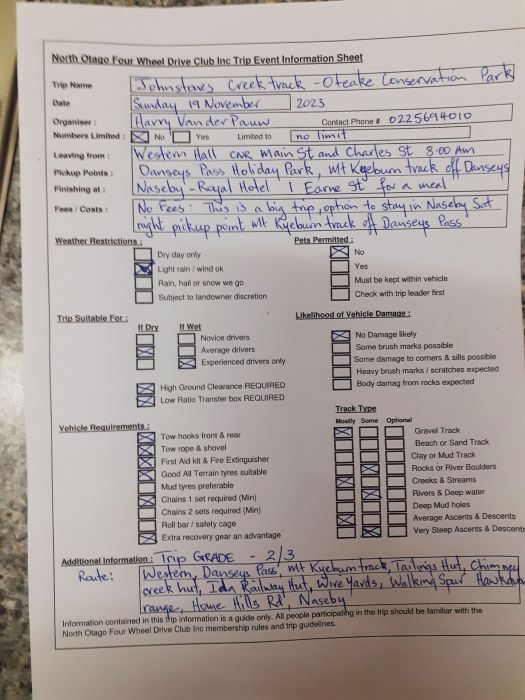 North Otago Four Wheel Drive Club Inc Trip Event Information Sheet
Trip Name Johnstones Creek track - Oteake Conservation Park
Date Sunday 19 November 2023
Organiser: Harry Van der Pauw Contact Phone # 0225694010
Numbers Limited: No Yes Limited to no limit
Leaving from: Western Hall CNR Main St and Charles St 8:00 Am
Pickup Points: Danseys Pass Holiday Park, Mt Kyeburn track off Danseys
Finishing at: Naseby - Royal Hotel 1 Earne St for a meal
Fees / Costs: No Fees: This is a big trip, option to stay in Naseby Sat
night pickup point Mt Kyeburn track off Danseys Pass
Weather Restrictions: Pets Permitted:
Dry day only No
Light rain / wind ok Yes
Rain, hail or snow we go Must be kept within vehicle
Subject to landowner discretion Check with trip leader first
Trip Suitable For: Likelihood of Vehicle Damage:
If Dry If Wet
Novice drivers No Damage likely
Average drivers Some brush marks possible
Experienced drivers only Some damage to corners & sills possible
Heavy brush marks / scratches expected
High Ground Clearance REQUIRED Body damag from rocks expected
Low Ratio Transfer box REQUIRED
Track Type
Vehicle Requirements: Mostly Some Optional
Tow hooks front & rear Gravel Track
Tow rope & shovel Beach or Sand Track
First Aid kit & Fire Extinguisher Clay or Mud Track
Good All Terrain tyres suitable Rocks or River Boulders
Mud tyres preferable Creeks & Streams
Chains 1 set required (Min) Rivers & Deep water
Chains 2 sets required (Min) Deep Mud holes
Roll bar / safety cage Average Ascents & Descents
Extra recovery gear an advantage Very Steep Ascents & Descents
Additional Information: Trip GRADE - 2/3
Route: Western, Danseys Pass, Mt Kyeburn track, Tailings Hut, Chimney
creek hut, Ida Railway Hut, Wire Yards, Walking Spur Hawkdun
range, Home Hills Rd, Naseby
Information contained in this trip information is a guide only. All people participating in the trip should be familiar with the
North Otago Four Wheel Drive Club Inc membership rules and trip guidelines.